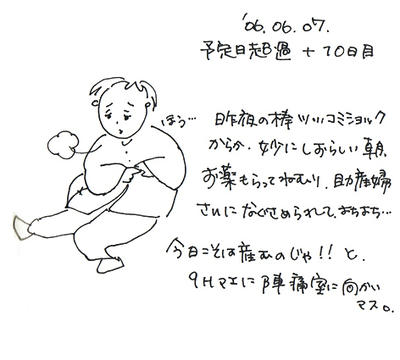 '06.06.07.
予定日超過 +10日目
ほう…
昨夜の棒ツッコミショック
からか、妙にしおらしい朝
お薬もらってねむり、助産婦
さんになぐさめられて、おちおち…
今日こそは産むのじゃ!! と、
9Hマエに陣痛室に向かい
マス。